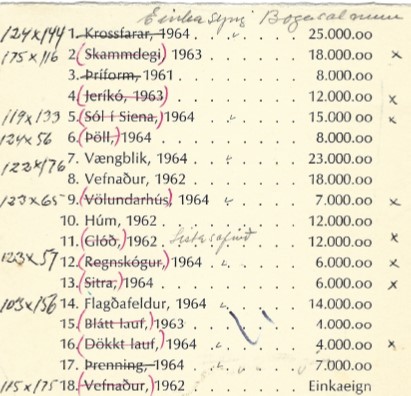 Einkasýning Bogasalnum
124x144 1. Krossfarar, 1964 . . . . . . . . 25.000.00
175x116 2. (Skammdegi) 1963 . . . . . . . 18.000.00 x
3. Þríform, 1961 . . . . . . . . 8.000.00
4. (Jeríkó, 1963) . . . . . . . . 12.000.00 x
119x133 5. (Sól í Siena,) 1964 . . . . . . . 15.000 00 x
124x56 6. (Þöll,) 1964 . . . . . . . . 8.000.00
122x176 7. Vængblik, 1964 . . . . . . . . 23.000.00
8. Vefnaður, 1962 . . . . . . . . 18.000.00
123x65 9. (Völundarhús) 1964 . . . . . . . 7.000.00 x
10. Húm, 1962 . . . . . . . . 12.000.00
11. (Glóð,) 1962 . Listasafnið . . . . 12.000.00 x
123x57 12. (Regnskógur,) 1964 . . . . . . . 6.000.00 x
13. (Sitra,) 1964 . . . . . . . . 6.000.00 x
103x156 14. Flagðafeldur, 1964 . . . . . . . 14.000.00
15. (Blátt lauf,) 1963 . . . . . . . 4.000.00
16. (Dökkt lauf,) 1964 . . . . . . . 4.000.00 x
17. Þrenning, 1964 . . . . . . . . 7.000.00
115x175 18. (Vefnaður,) 1962 . . . . . . . Einkaeign